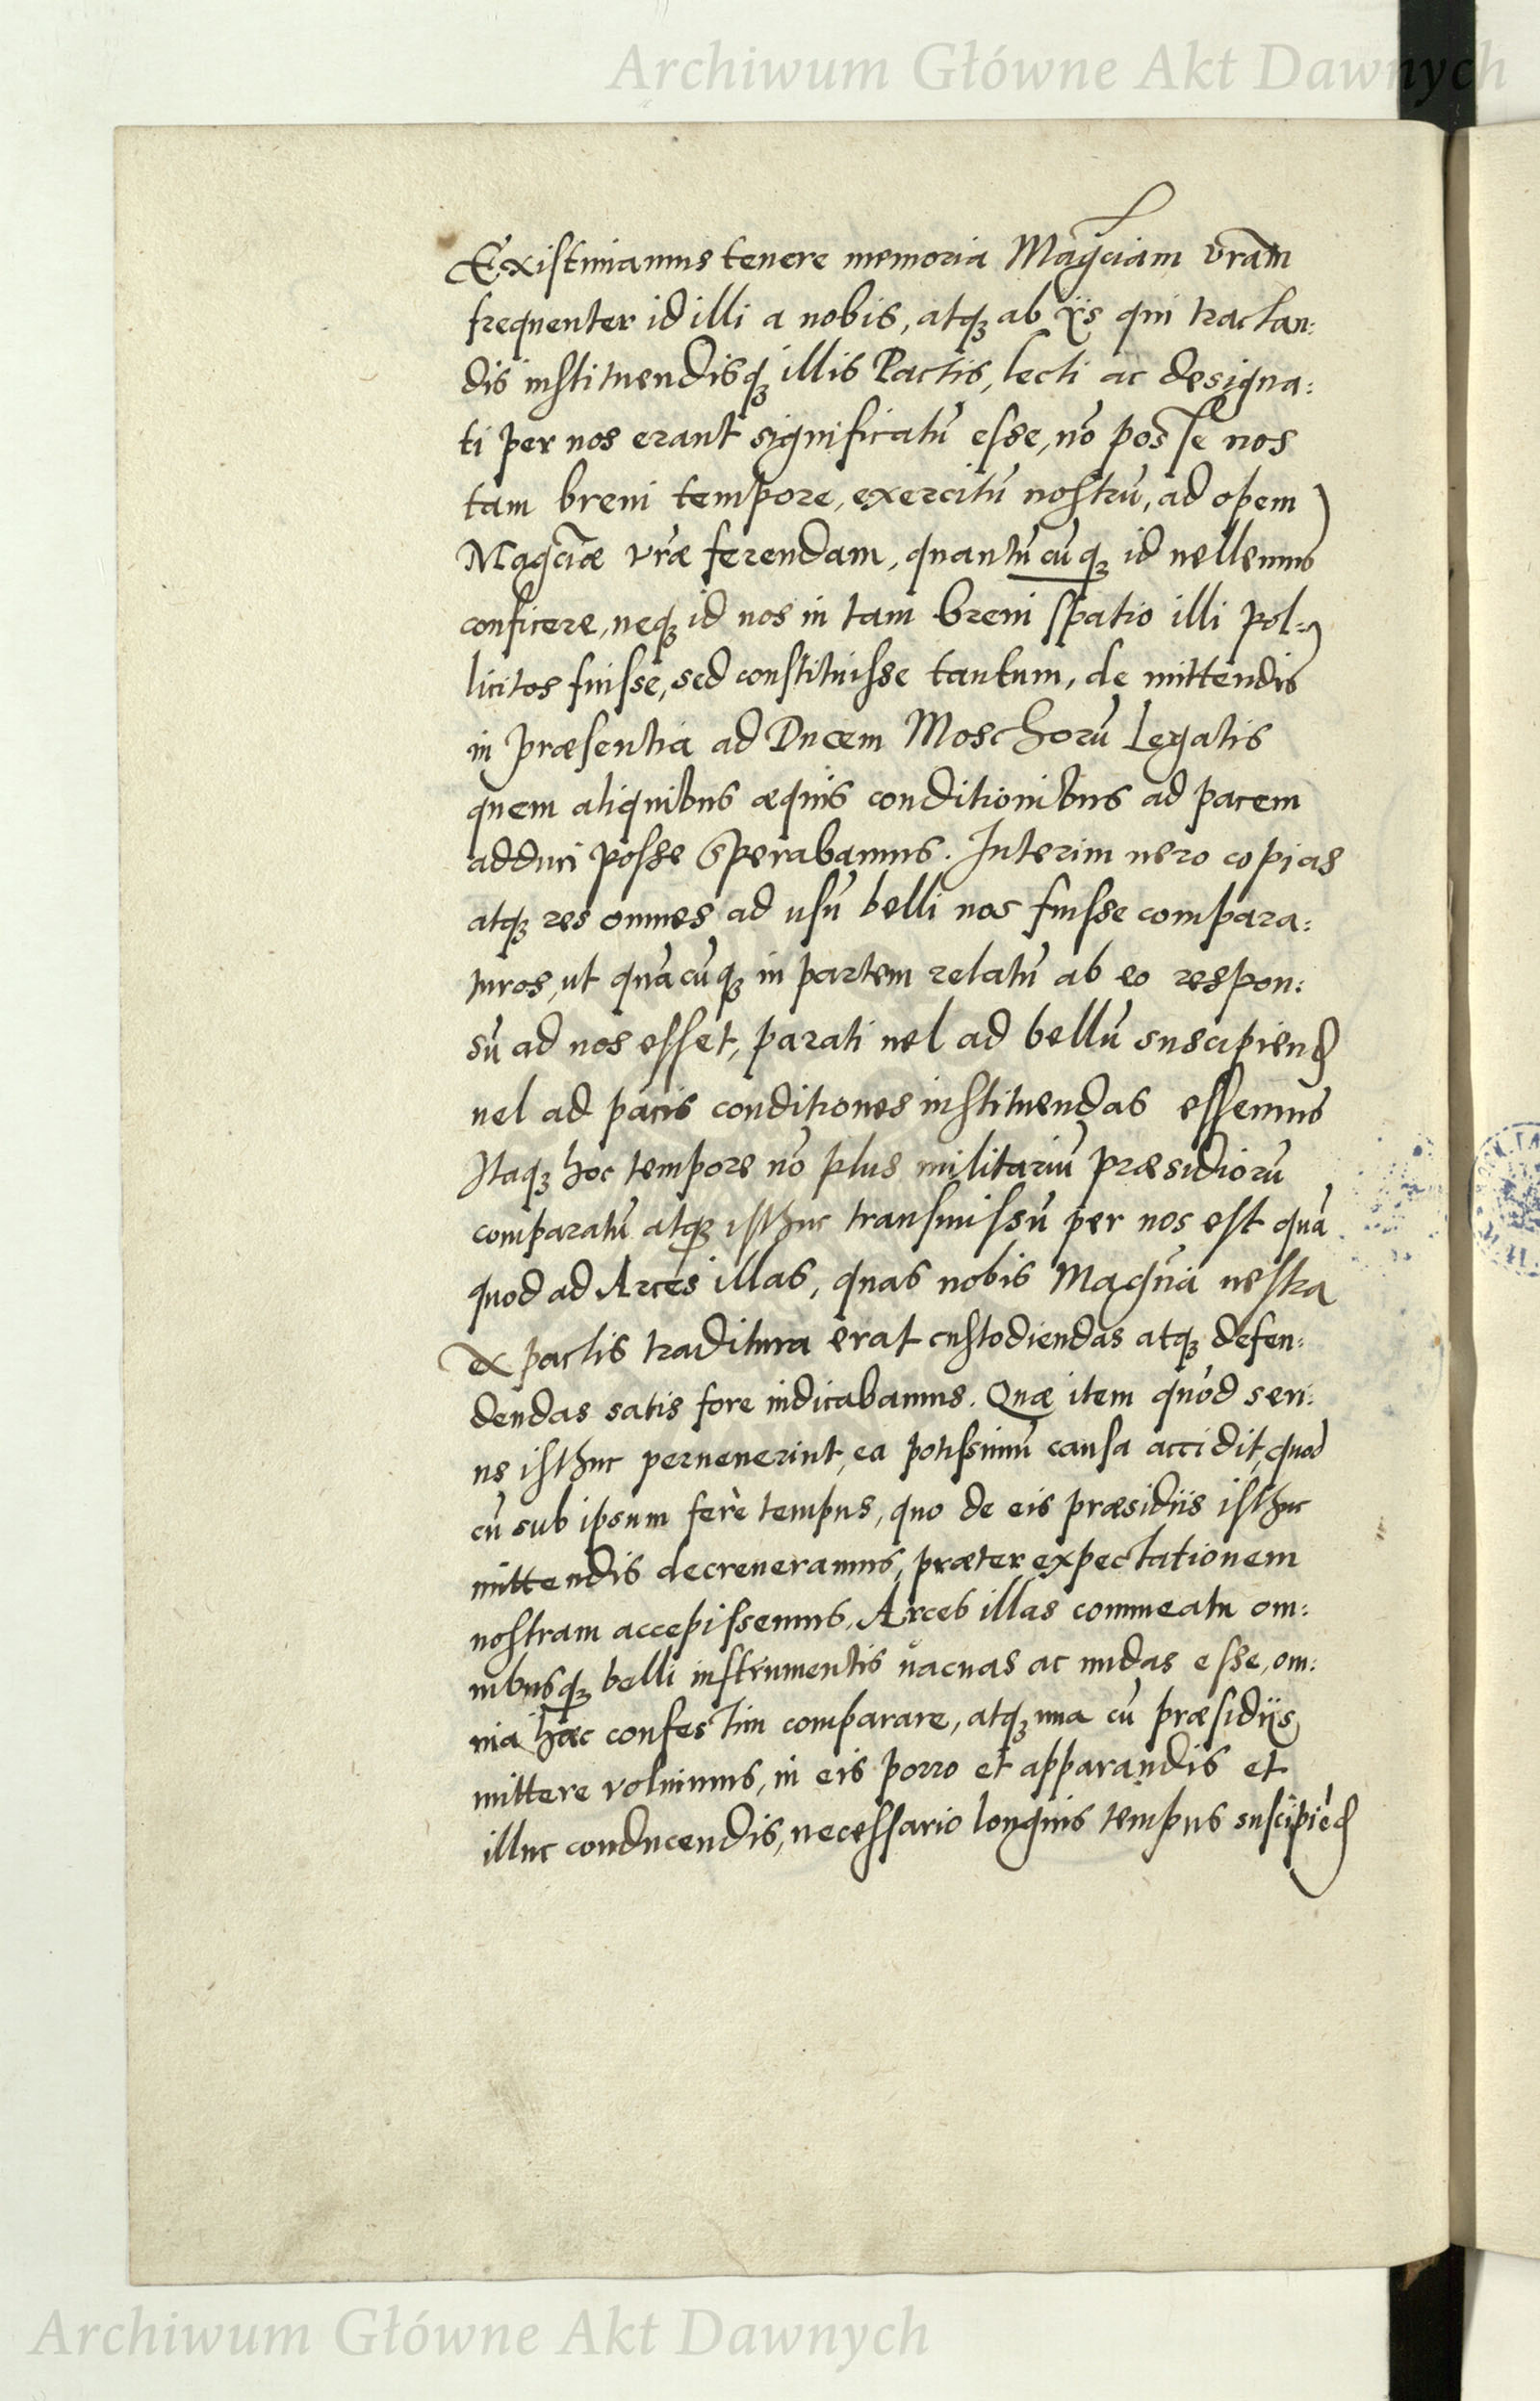 Archiwum Główne Akt Dawnych
Existimamus tenere memoria Magciam vram
frequenter id illi a nobis, atq3 ab ijs qui tractan:
dis instituendisq3 illis Pactis, lecti ac designa:
ti per nos erant significatũ esse, nõ posse nos
tam breui tempore, exercitũ nostrũ, ad opem
Magciæ vræ ferendam, quantũcũq3 id uellemus
conficere, neq3 id nos in tam breui spatio illi pol:
licitos fuisse, sed constituisse tantum, de mittendis
in præsentia ad Ducem Moschorũ Legatis
quem aliquibus æquis conditionibus ad pacem
adduci posse sperabamus. Interim uero copias
atq3 res omnes ad usũ belli nos fuisse compara:
turos, ut quãcũq3 in partem relatũ ab eo respon:
sũ ad nos esset, parati uel ad bellũ suscipiend
uel ad pacis conditiones instituendas essemus
Itaq3 hoc tempore nõ plus militariũ præsidiorũ
comparatũ atq3 isthuc transmissũ per nos est quã
quod ad Arces illas, quas nobis Magũia uestra
ex pactis traditura erat custodiendas atq3 defen:
dendas satis fore iudicabamus. Quæ item quod seri:
us isthuc peruenerint, ea potissimũ causa accidit, quod
cũ sub ipsum ferè tempus, quo de eis præsidiis isthuc
mittendis decreueramus, præter expectationem
nostram accepissemus, Arces illas commeatu om:
nibusq3 belli instrumentis uacuas ac nudas esse, om:
nia hæc confestim comparare, atq3 una cũ præsidijs
mittere voluimus, in eis porro et apparandis et
illuc conducendis, necessario longius tempus suscipiẽd
Archiwum Główne Akt Dawnych